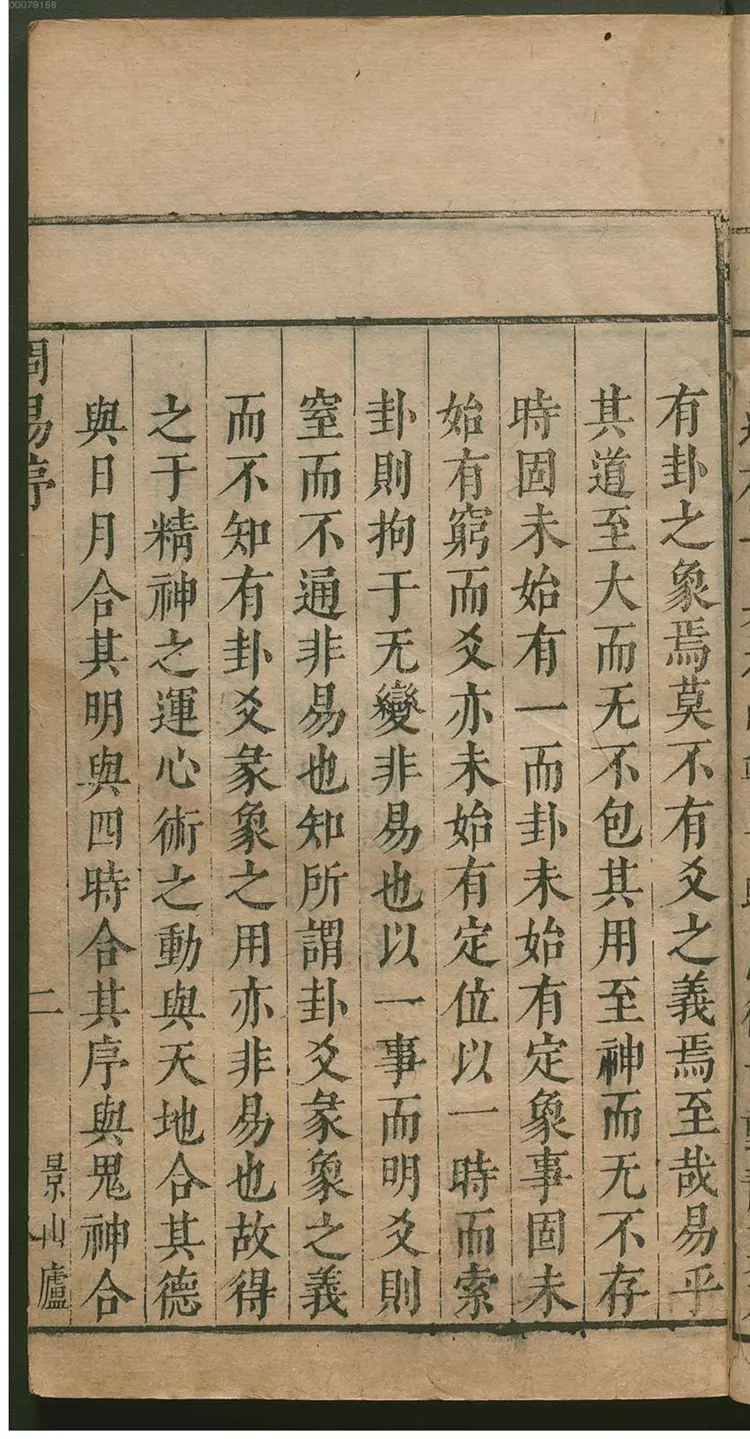 00079156
有卦之象焉莫不有爻之義焉至哉易乎
其道至大而无不包其用至神而无不存
時固未始有一而卦未始有定象事固未
始有窮而爻亦未始有定位以一時而索
卦則拘于无變非易也以一事而明爻則
窒而不通非易也知所謂卦爻彖象之義
而不知有卦爻彖象之用亦非易也故得
之于精神之運心術之動與天地合其德
與日月合其明與四時合其序與鬼神合
周易序
二
景山廬